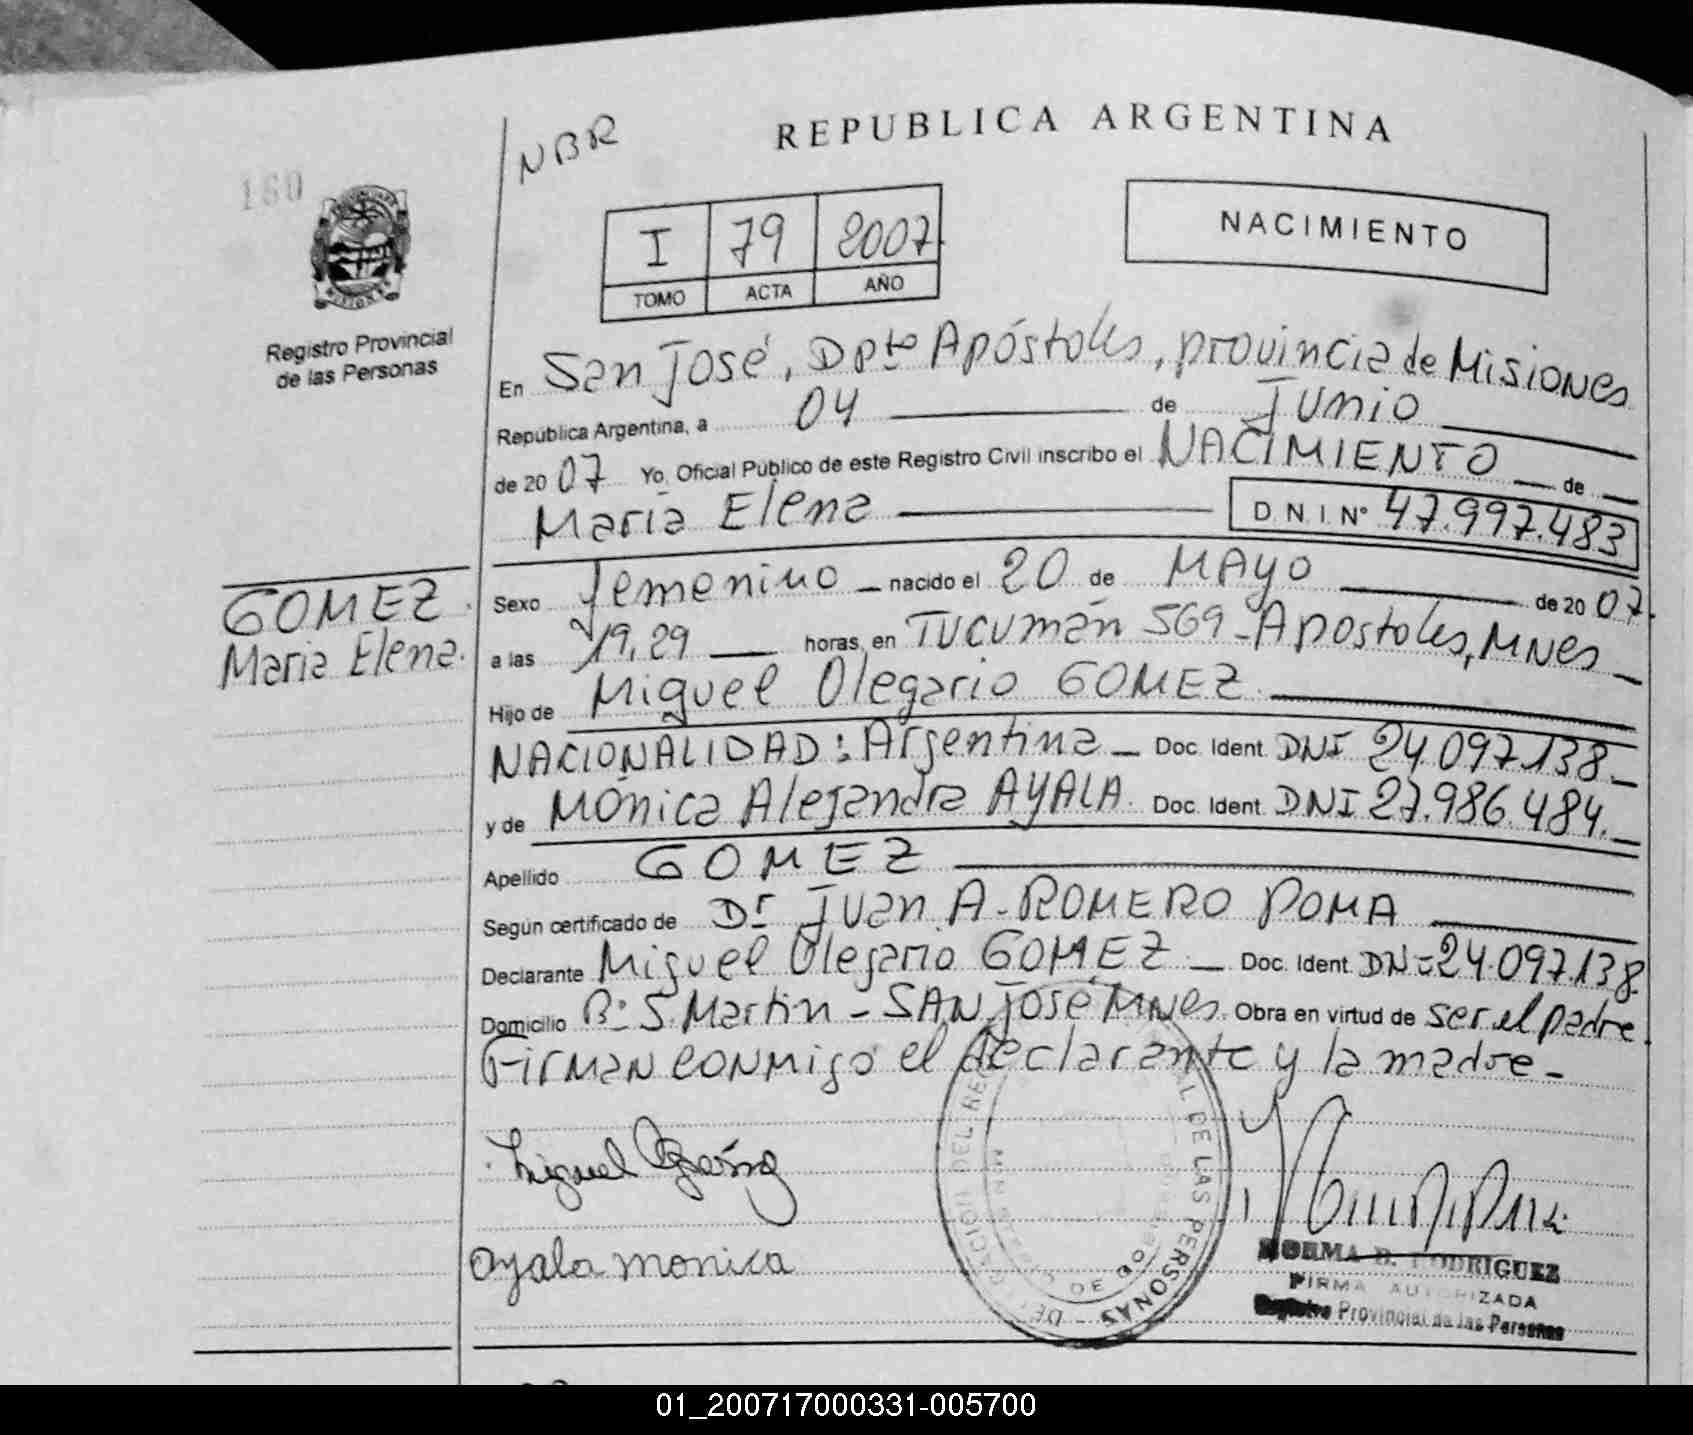 NBR
REPUBLICA ARGENTINA
160
I 79 2007
TOMO ACTA AÑO
NACIMIENTO
Registro Provincial
de las Personas
En San José, Dpto Apóstoles, provincia de Misiones
República Argentina, a 04 de Junio
de 2007 Yo, Oficial Público de este Registro Civil inscribo el NACIMIENTO de
María Elena D N I Nº 47.997.483
GOMEZ
María Elena.
Sexo femenino nacido el 20 de MAYO de 2007.
a las 19,29 horas, en Tucumán 569 - Apostoles, MNes
Hijo de Miguel Olegario GOMEZ
NACIONALIDAD: Argentina - Doc. Ident. DNI 24.097.138 -
y de Mónica Alejandra AYALA. Doc. Ident. DNI 27.986.484. -
Apellido GOMEZ
Según certificado de Dr Juan A. ROMERO POMA
Declarante Miguel Olegario GOMEZ - Doc. Ident. DNI 24.097.138.
Domicilio Bº S. Martin - SAN José MNes. Obra en virtud de ser el padre.
Firman conmigo el declarante y la madre -
Miguel
ayala monica
DE LAS PERSONAS
NORMA B. RODRIGUEZ
FIRMA AUTORIZADA
Registro Provincial de las Personas
01_200717000331-005700